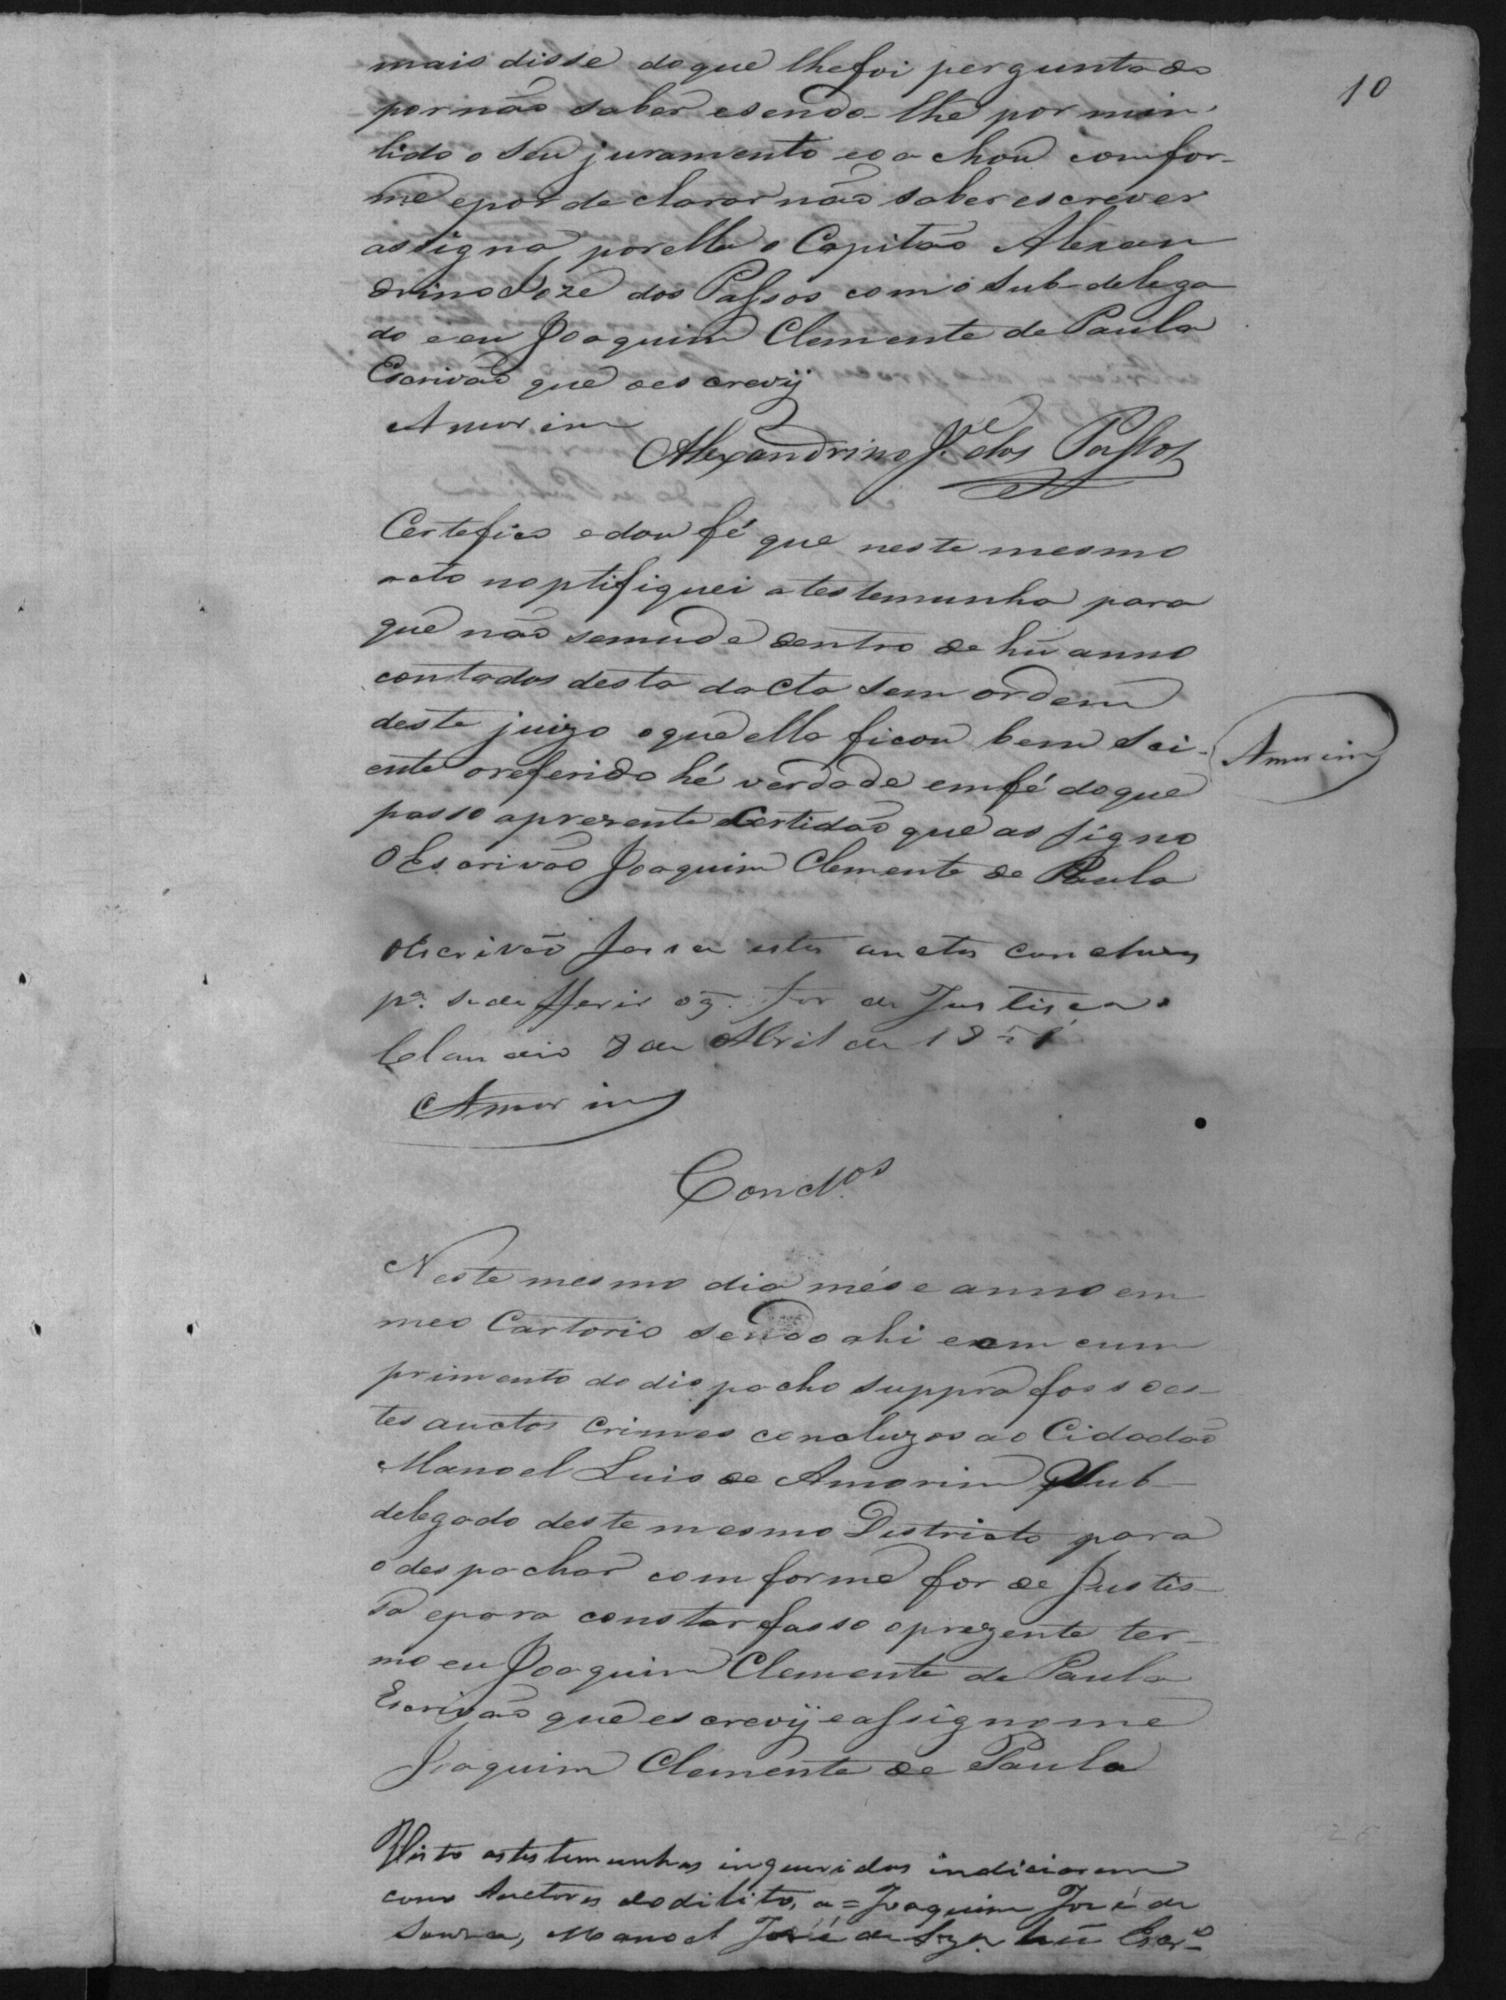 10
mais disse doque lhefoi perguntado
pornão saber esendo-lhe por min
lido o seu juramento eoachou comfor-
me epor declarar não saber escrever
assigna porella o Capitão Alexan
drino Joze dos Passos com o Sub-delega
do eeu Joaquim Clemente de Paula
Escrivão que oescrevij
Amorim
Alexandrino J.e dos Passos
Certefico edou fé que neste mesmo
acto noptifiquei atestemunha para
que não semude dentro de hũ anno
contados desta dacta sem ordem
deste juizo oque ella ficou bem Sci-
ente oreferido hé verdade emfé doque
passo aprezente Certidão que assigno
OEscrivão Joaquim Clemente de Paula
Amorim
OEscrivão fassa estes auctos concluzos
pa. se defferir o q. for de Justisa.
8 de Abril de
Amorim
Concl.os
Neste mesmo dia mês e anno em
meo Cartorio sendo ahi eem cum
primento do dispacho suppra fasso es-
tes auctos crimes concluzos ao Cidadão
Manoel Luis de Amorim Sub-
delegado deste mesmo Districto para
odespachar comforme for de Justis-
sa epara constar fasso oprezente ter-
mo eu Joaquim Clemente de Paula
Escrivão que escrevij eassignome
Joaquim Clemente de Paula
Visto astestemunhas inqueridas indiciarem
como Auctores dodilito, a = Joaquim José de
Souza, Manoel José de Sza. hũ Escr.o